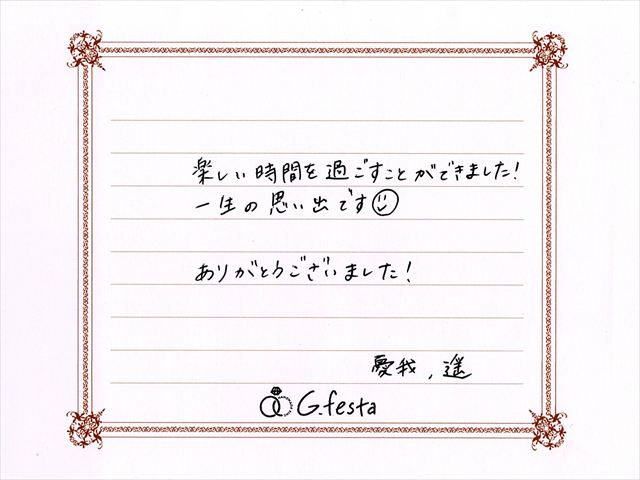 楽しい時間を過ごすことができました!
一生の思い出です
ありがとうございました!
愛我,遥
G.festa